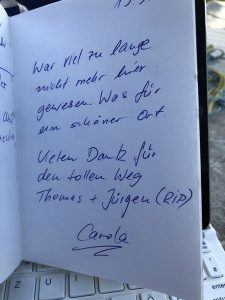 War viel zu lange
nicht mehr hier
gewesen. Was für
ein schöner Ort.
Vielen Dank für
den tollen Weg
Thomas + Jürgen (RIP)
Carola